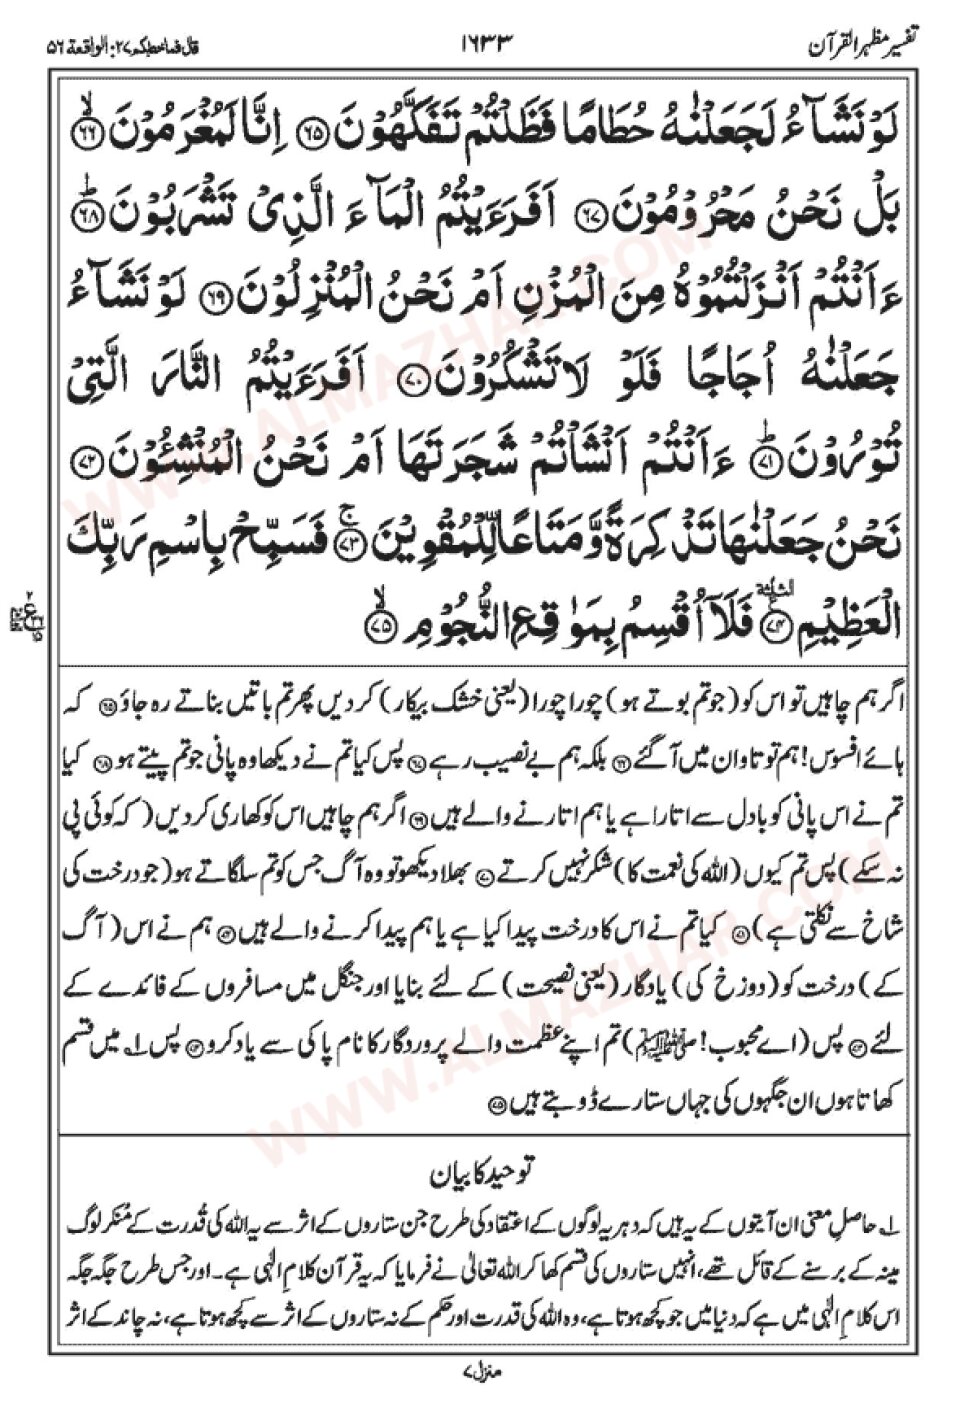 تفسیر مظہر القرآن
۱٦٣٣
قال فما خطبکم ۲۷: الواقعۃ ۵۶
لَوْ نَشَآءُ لَجَعَلْنٰهُ حُطَامًا فَظَلْتُمْ تَفَكَّهُوْنَ ۝۶۵ اِنَّا لَمُغْرَمُوْنَ ۝۶۶ۙ
بَلْ نَحْنُ مَحْرُوْمُوْنَ ۝۶۷ اَفَرَءَيْتُمُ الْمَآءَ الَّذِيْ تَشْرَبُوْنَ ۝۶۸ؕ
ءَاَنْتُمْ اَنْزَلْتُمُوْهُ مِنَ الْمُزْنِ اَمْ نَحْنُ الْمُنْزِلُوْنَ ۝۶۹ لَوْ نَشَآءُ
جَعَلْنٰهُ اُجَاجًا فَلَوْ لَا تَشْكُرُوْنَ ۝۷۰ اَفَرَءَيْتُمُ النَّارَ الَّتِيْ
تُوْرُوْنَ ۝۷۱ؕ ءَاَنْتُمْ اَنْشَاْتُمْ شَجَرَتَهَا اَمْ نَحْنُ الْمُنْشِـُٔوْنَ ۝۷۲
نَحْنُ جَعَلْنٰهَا تَذْكِرَةً وَّ مَتَاعًا لِّلْمُقْوِيْنَ ۝۷۳ۚ فَسَبِّحْ بِاسْمِ رَبِّكَ
الْعَظِيْمِ ۝۷۴ فَلَاۤ اُقْسِمُ بِمَوٰقِعِ النُّجُوْمِ ۝۷۵ۙ
اگر ہم چاہیں تو اس کو (جو تم بوتے ہو) چورا چورا (یعنی خشک بیکار) کر دیں پھر تم باتیں بناتے رہ جاؤ ۶۵ کہ
ہائے افسوس! ہم تو تاوان میں آ گئے ۶۶ بلکہ ہم بے نصیب رہے ۶۷ پس کیا تم نے دیکھا وہ پانی جو تم پیتے ہو ۶۸ کیا
تم نے اس پانی کو بادل سے اتارا ہے یا ہم اتارنے والے ہیں ۶۹ اگر ہم چاہیں اس کو کھاری کر دیں (کہ کوئی پی
نہ سکے) پس تم کیوں (اللہ کی نعمت کا) شکر نہیں کرتے ۷۰ بھلا دیکھو تو وہ آگ جس کو تم سلگاتے ہو (جو درخت کی
شاخ سے نکلتی ہے) ۷۱ کیا تم نے اس کا درخت پیدا کیا ہے یا ہم پیدا کرنے والے ہیں ۷۲ ہم نے اس (آگ
کے) درخت کو (دوزخ کی) یادگار (یعنی نصیحت) کے لئے بنایا اور جنگل میں مسافروں کے فائدے کے
لئے ۷۳ پس (اے محبوب! ﷺ) تم اپنے عظمت والے پروردگار کا نام پاکی سے یاد کرو ۷۴ پس ۱؎ میں قسم
کھاتا ہوں ان جگہوں کی جہاں ستارے ڈوبتے ہیں ۷۵
توحید کا بیان
۱؎ حاصل معنی ان آیتوں کے یہ ہیں کہ دہریہ لوگوں کے اعتقاد کی طرح جن ستاروں کے اثر سے یہ اللہ کی قُدرت کے مُنکر لوگ
مینہ کے برسنے کے قائل تھے، انہیں ستاروں کی قسم کھا کر اللہ تعالیٰ نے فرمایا کہ یہ قرآن کلامِ الٰہی ہے۔ اور جس طرح جگہ جگہ
اس کلامِ الٰہی میں ہے کہ دنیا میں جو کچھ ہوتا ہے، وہ اللہ کی قدرت اور حکم کے نہ ستاروں کے اثر سے کچھ ہوتا ہے، نہ چاند کے اثر
منزل ۷
WWW.ALMAZHAR.COM
WWW.ALMAZHAR.COM